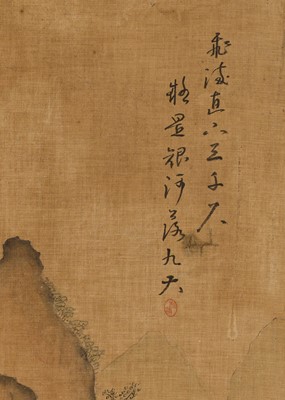 飛流直下三千尺
疑是銀河落九天